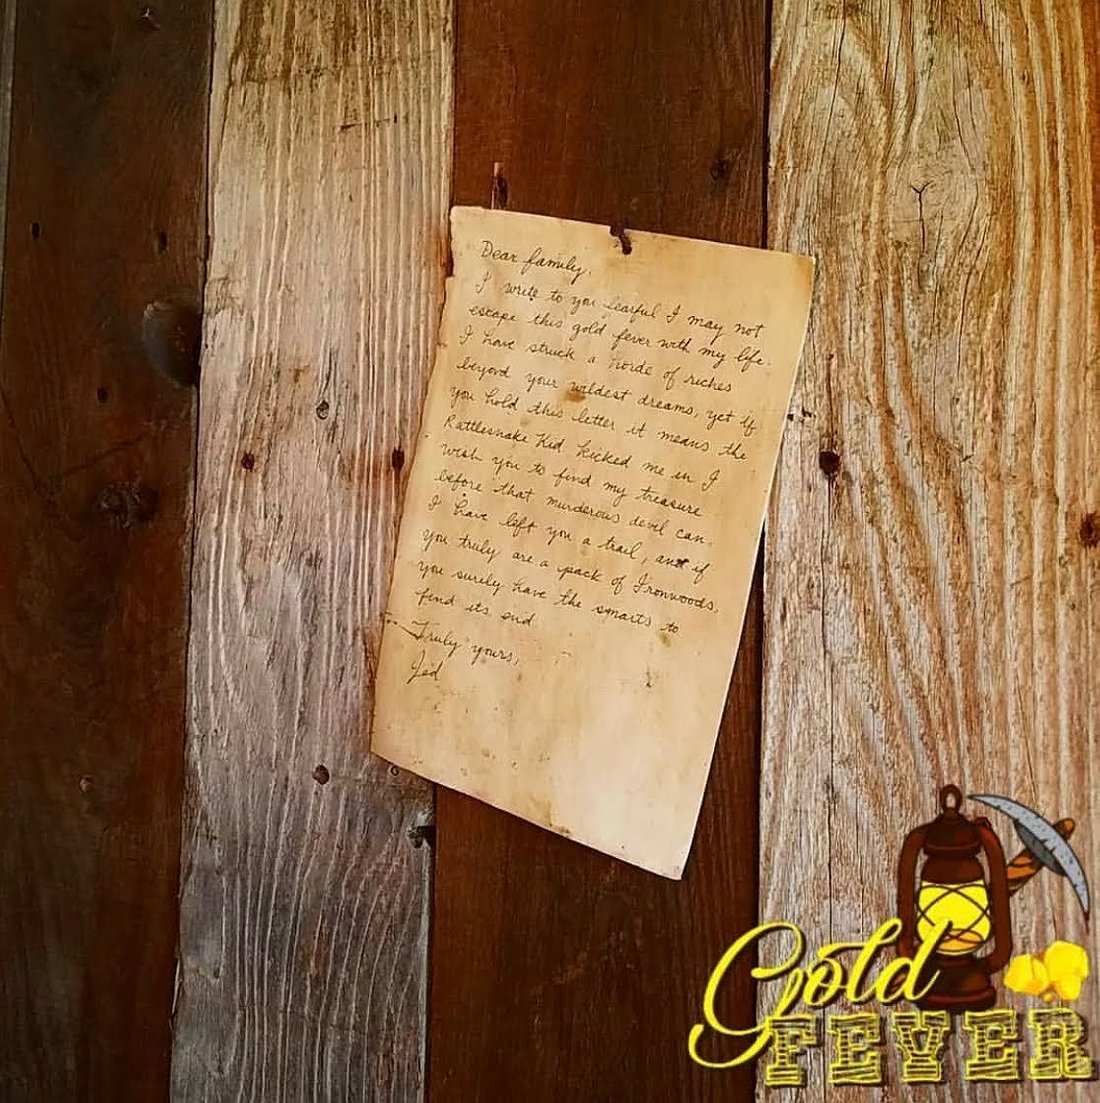 Dear family,
I write to you fearful I may not
escape this gold fever with my life.
I have struck a horde of riches
beyond your wildest dreams, yet if
you hold this letter it means the
Rattlesnake Kid kicked me in I
wish you to find my treasure
before that murderous devil can.
I have left you a trail, and if
you truly are a pack of Ironwoods,
you surely have the smarts to
find its end
Truly yours,
Jed
Gold
FEVER